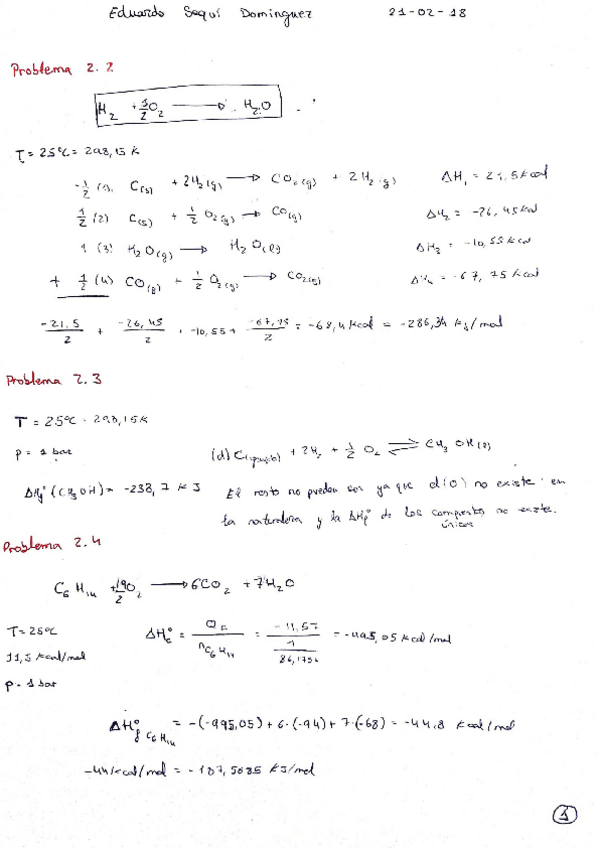 Eduardo Seguí Domínguez 21-02-18
Problema 2.2
H2 + 1/2 O2 → H2O
T = 25ºC = 298,15 K
-1/2 (1) C(s) + 2H2(g) → CO2(g) + 2H2(g) ΔH1 = 21,5 kcal
1/2 (2) C(s) + 1/2 O2(g) → CO(g) ΔH2 = -26,45 kcal
1 (3) H2O(g) → H2O(l) ΔH3 = -10,55 kcal
+ 1/2 (4) CO(g) + 1/2 O2(g) → CO2(g) ΔH4 = -67,75 kcal
-21,5/2 + -26,45/2 + -10,55 + -67,75/2 = -68,4 kcal = -286,34 kJ/mol
Problema 2.3
T = 25ºC = 298,15 K
p = 1 bar (d) C(grafito) + 2H2 + 1/2 O2 ⇌ CH3OH(l)
ΔHfº (CH3OH) = -238,7 kJ El resto no pueden ser ya que d(O) no existe en
la naturaleza y la ΔHfº de los compuestos únicos no existe.
Problema 2.4
C6H14 + 19/2 O2 → 6CO2 + 7H2O
T = 25ºC ΔHcº = Qc/nC6H14 = -11,57/(1/86,1754) = -995,05 kcal/mol
11,5 kcal/mol
p = 1 bar
ΔHfº C6H14 = -(-995,05) + 6·(-94) + 7·(-68) = -44,8 kcal/mol
-44 kcal/mol = -187,5685 kJ/mol
1